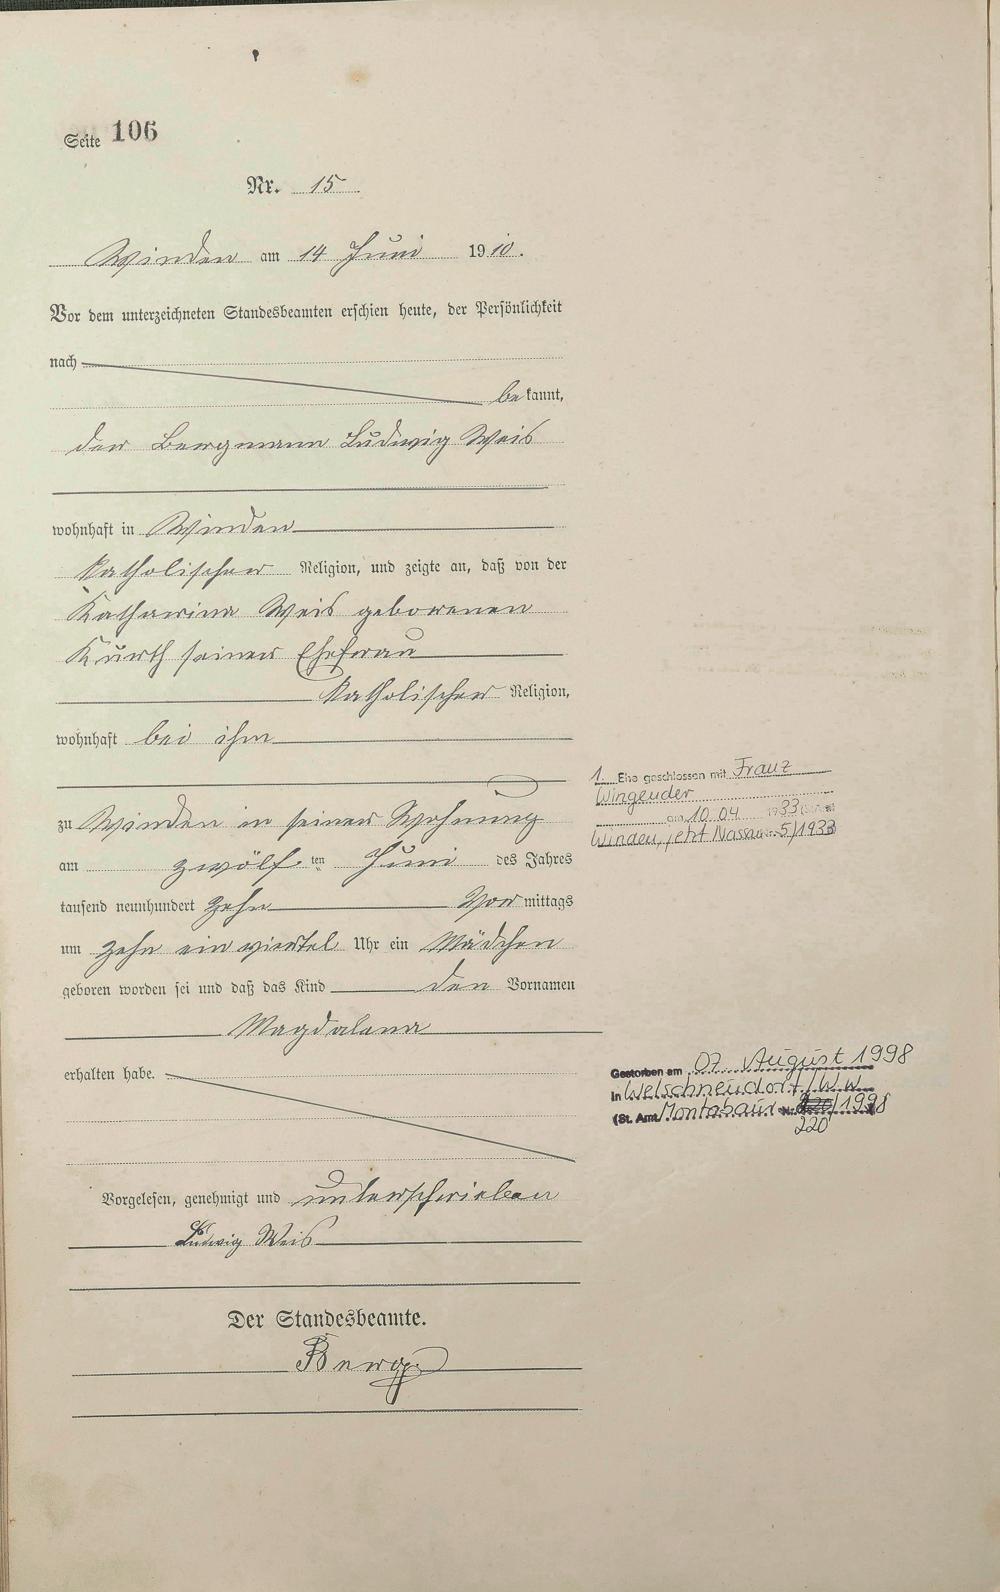 Seite 106
Nr. 15
Winden am 14 Juni 1910.
Vor dem unterzeichneten Standesbeamten erschien heute, der Persönlichkeit
nach
bekannt,
der Bergmann Ludwig Weis
wohnhaft in Winden
katholischer Religion, und zeigte an, daß von der
Katharina Weis geborenen
Kurth seiner Ehefrau
katholischer Religion,
wohnhaft bei ihm
zu Winden in seiner Wohnung
am zwölf ten Juni des Jahres
tausend neunhundert zehn Vormittags
um zehn ein viertel Uhr ein Mädchen
geboren worden sei und daß das Kind den Vornamen
Magdalena
erhalten habe.
Vorgelesen, genehmigt und unterschrieben
Ludwig Weis
Der Standesbeamte.
Berg
1. Ehe geschlossen mit Franz
Wingender
am 10.04. 1933
Winden, jetzt Nassau Nr. 5/1933
Gestorben am 07. August 1998
in Welschneudorf/Ww
(St. Amt Montabaur Nr. /1998
220